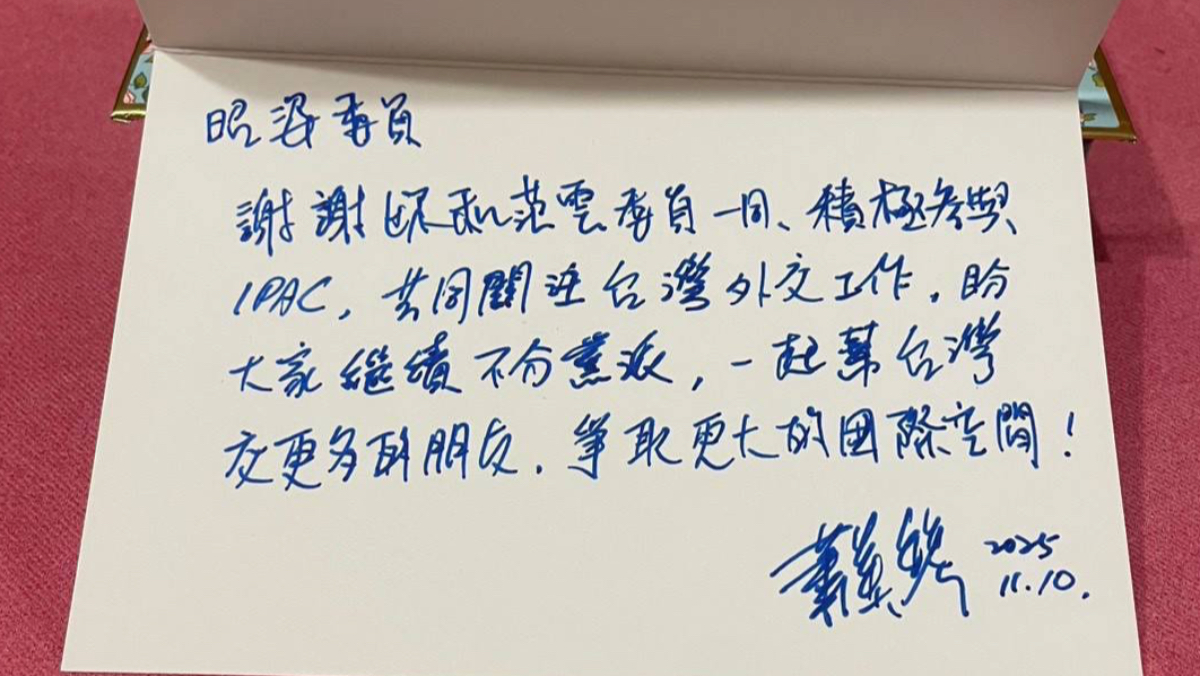 昭姿委員
謝謝妳和范雲委員一同、積極參與
IPAC，共同關注台灣外交工作，盼
大家繼續不分黨派，一起幫台灣
交更多的朋友，爭取更大的國際空間！
蕭美琴 2025
11.10.